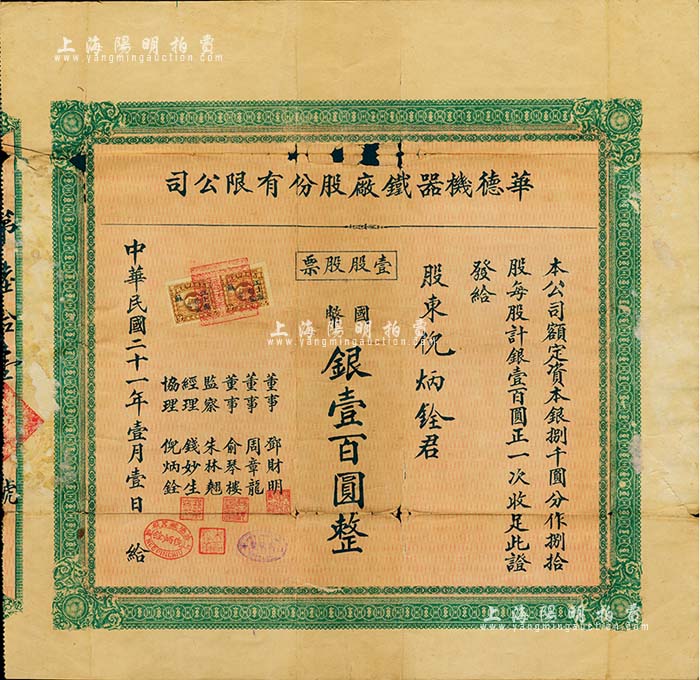 上海陽明拍賣
www.yangmingauction.com
司公限有份股廠鐵器機德華
本公司額定資本銀捌千圓分作捌拾
股每股計銀壹百圓正一次收足此證
發給
股東倪炳銓君
票股股壹
國幣銀壹百圓整
上海陽明拍賣
www.yangmingauction.com
董事 鄧財明
董事 周章龍
董事 俞琴樓
監察 朱林翹
經理 錢妙生
協理 倪炳銓
中華民國二十一年壹月壹日 給
第壹拾壹號
上海陽明拍賣
www.yangmingauction.com